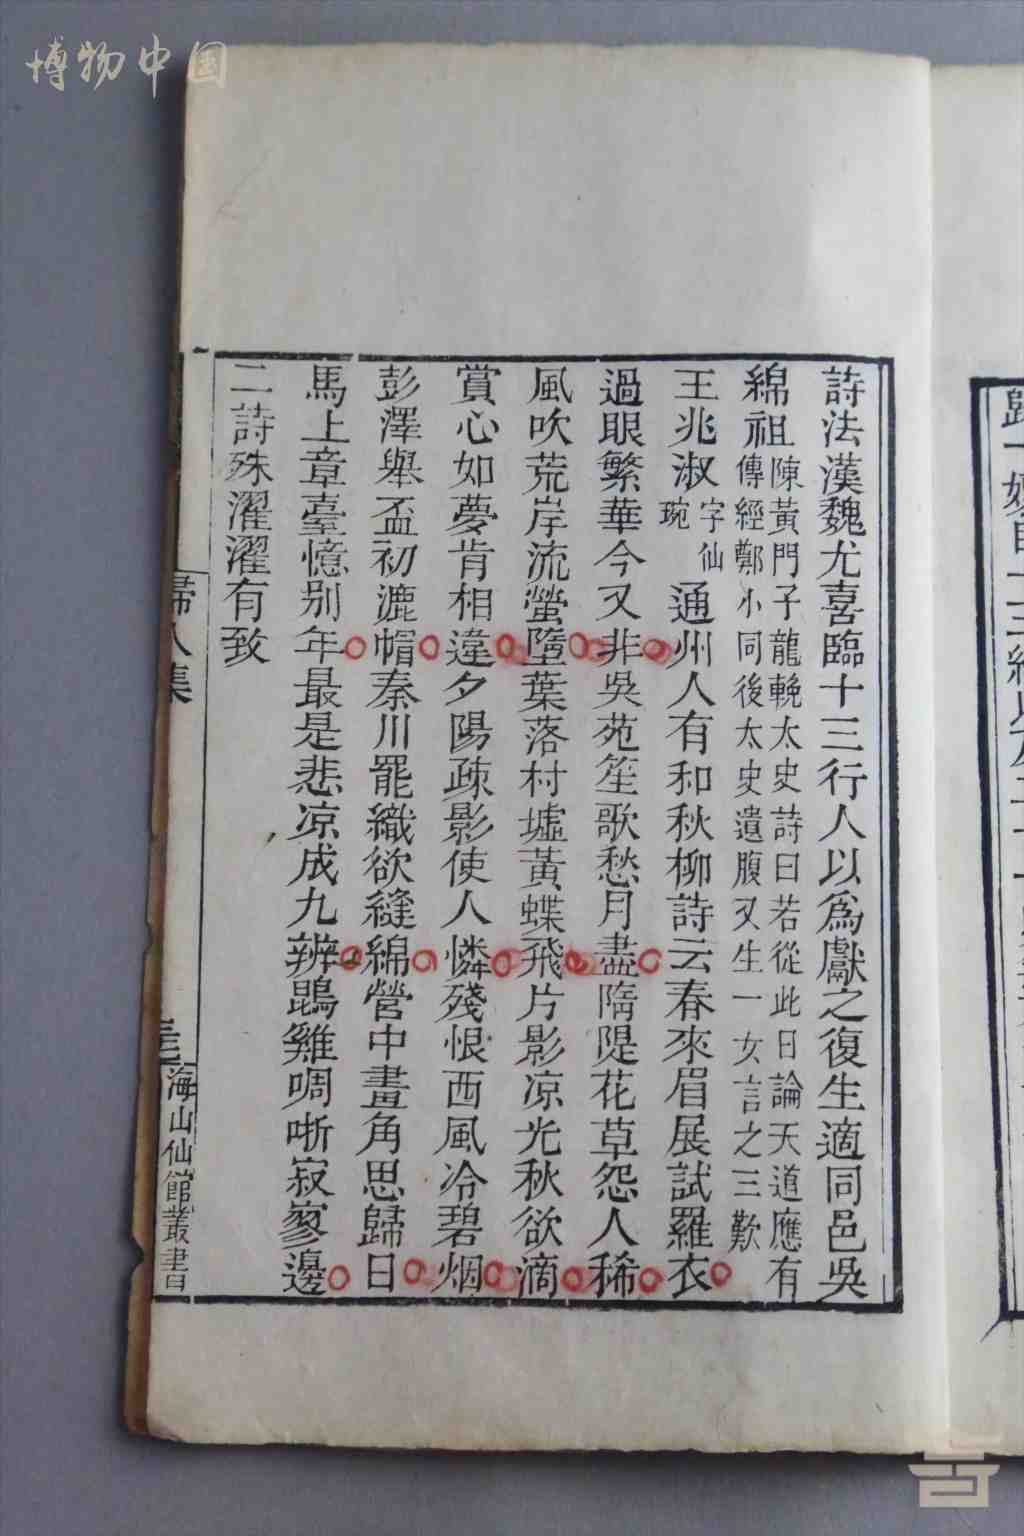 博物中国
詩法漢魏尤喜臨十三行人以為獻之復生適同邑吳
綿祖陳黃門子龍輓太史詩曰若從此日論天道應有
傳經鄭小同後太史遺腹又生一女言之三歎
王兆淑字仙琬通州人有和秋柳詩云春來眉展試羅衣
過眼繁華今又非吳苑笙歌愁月盡隋隄花草怨人稀
風吹荒岸流螢墮葉落村墟黃蝶飛片影凉光秋欲滴
賞心如夢肯相違夕陽疎影使人憐殘恨西風冷碧烟
彭澤舉盃初漉帽秦川罷織欲縫綿營中畫角思歸日
馬上章臺憶别年最是悲凉成九辨鵾雞啁哳寂寥邊
二詩殊濯濯有致
婦人集
海山仙館叢書